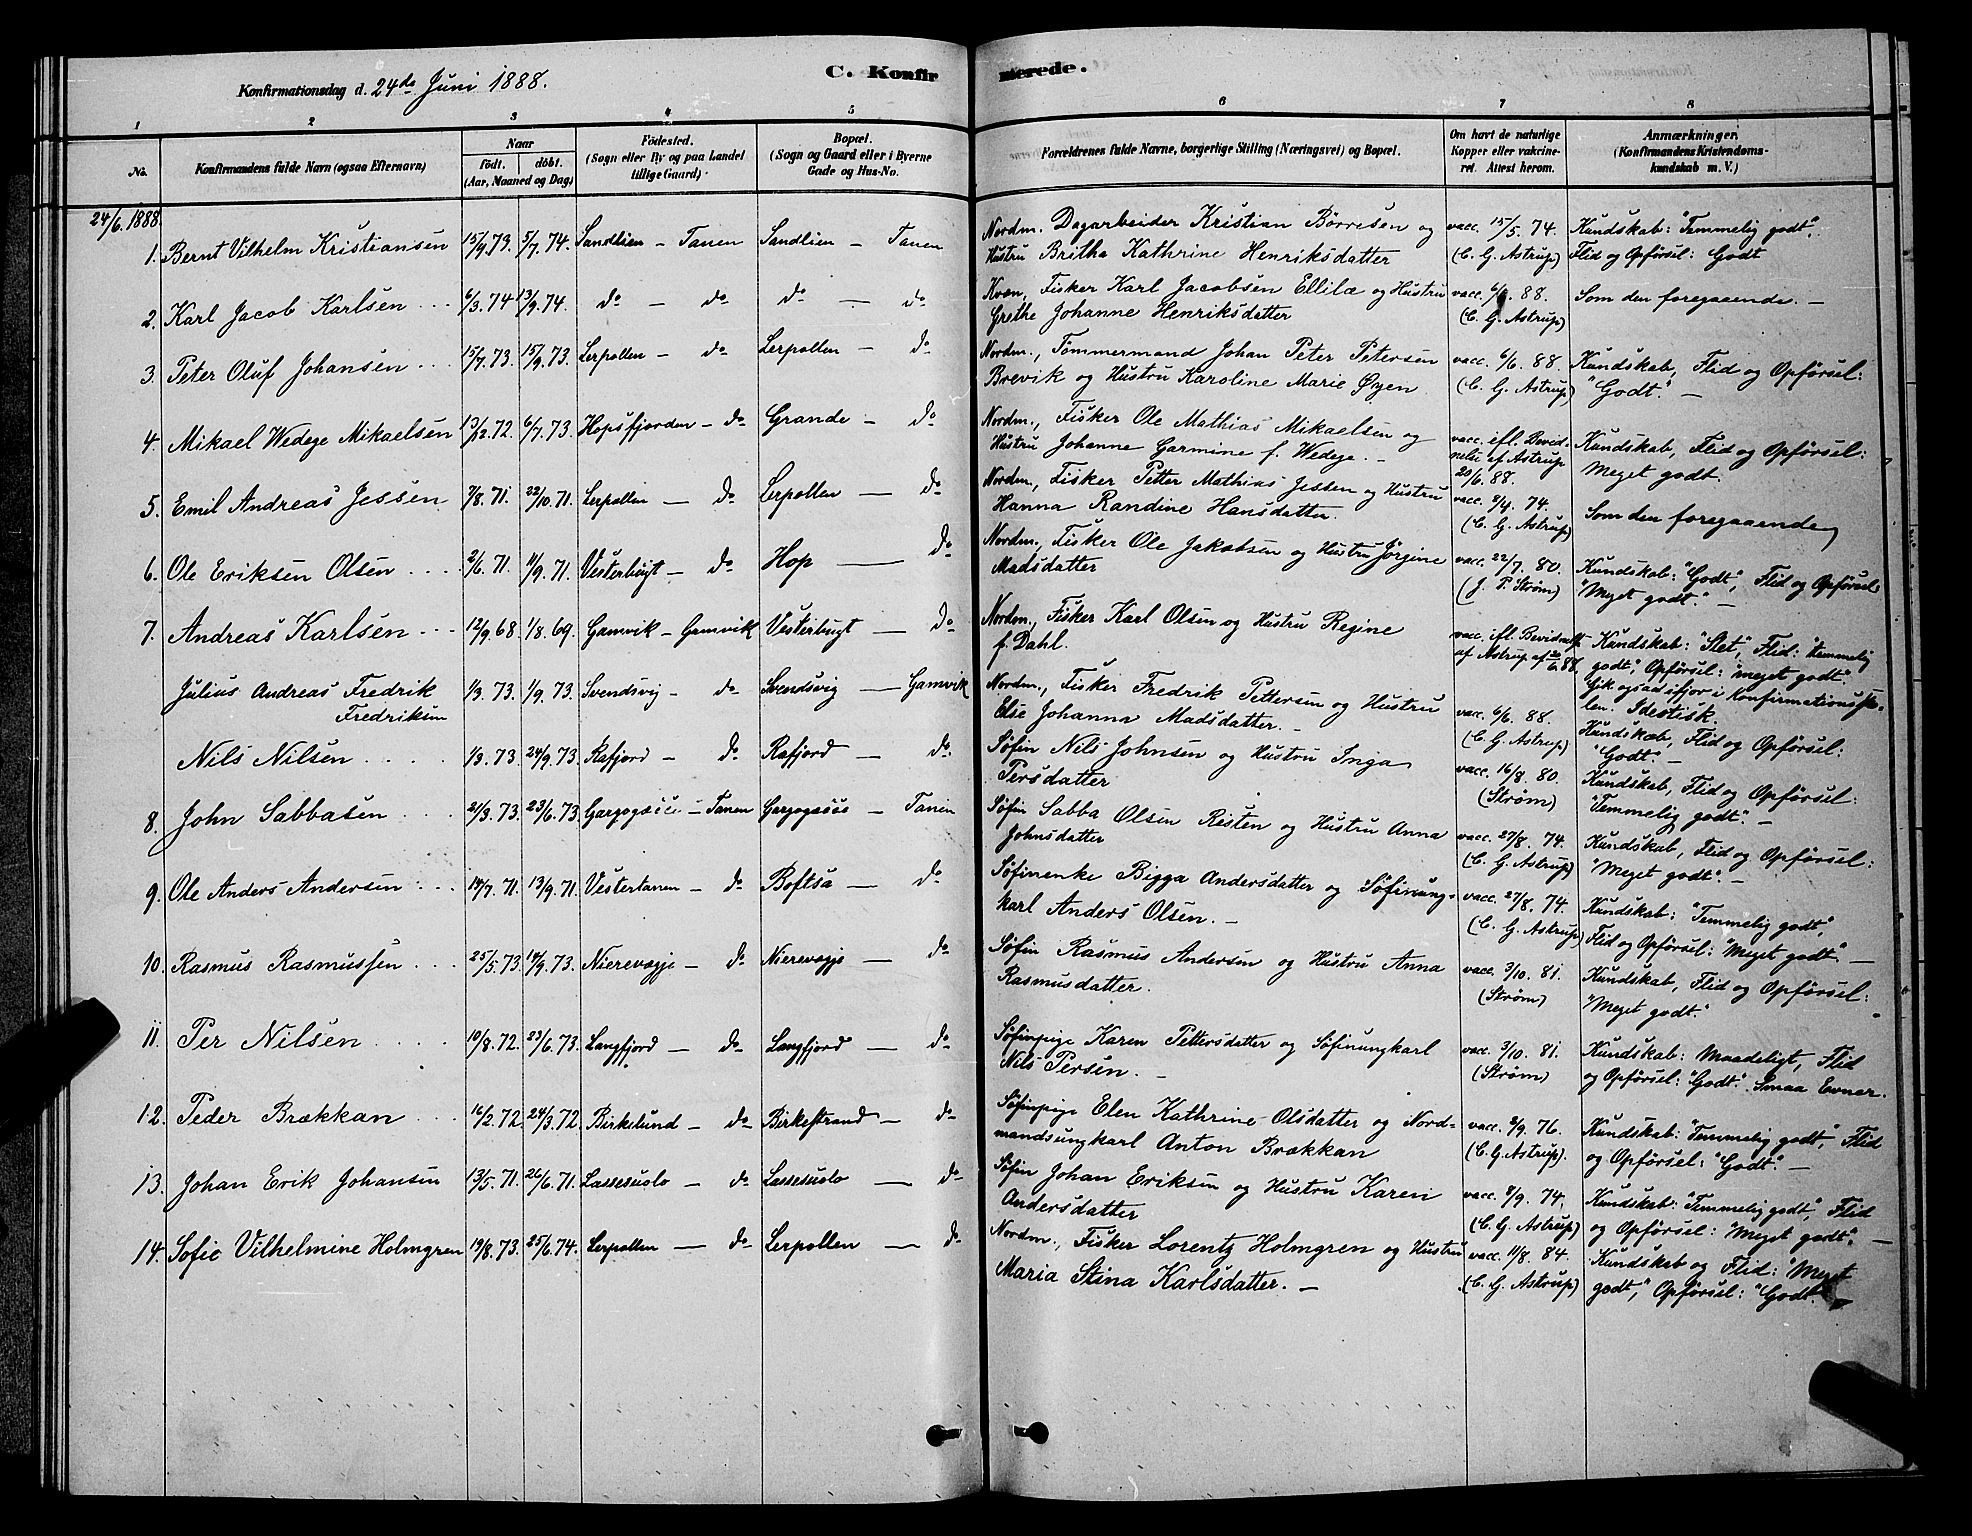 C. Konfirmerede.
Konfirmationsdag d. 24de Juni 1888.
1 2 3 4 5 6 7 8
No.
Konfirmandens fulde Navn (ogsaa Efternavn)
Naar
födt. döbt.
(Aar, Maaned og Dag)
Födested.
(Sogn eller By og paa Landet
tillige Gaard)
Bopæl.
(Sogn og Gaard eller i Byerne
Gade og Hus-No.
Forældrenes fulde Navne, borgerlige Stilling (Næringsvei) og Bopæl.
Om havt de naturlige
Kopper eller vakcine-
ret. Attest herom.
Anmærkninger.
(Konfirmandens Kristendoms-
kundskab m. V.)
24/6 1888
1. Bernt Vilhelm Kristiansen 15/9 73. 5/7 74. Sandlien - Tanen Sandlien - Tanen
Nordm. Dagarbeider Kristian Börresen og
Hustru Britha Kathrine Henriksdatter
vacc. 15/5. 74.
(C. G. Astrup)
Kundskab: "Temmelig godt".
Flid og Opförsel: Godt
2. Karl Jacob Karlsen 6/3 74 13/9 74. do - do do - do
Kvæn, Fisker Karl Jacobsen Ellilæ og Hustru
Grethe Johanne Henriksdatter
vacc. 6/6. 88.
(C. G. Astrup)
Som den foregaaende. -
3. Peter Oluf Johansen 15/7. 73. 15/9. 73. Lerpollen - do Lerpollen - do
Nordm., Tömmermand Johan Peter Petersen
Brevik og Hustru Karoline Marie Øyen
vacc. 6/6. 88.
(C. G. Astrup)
Kundskab, Flid og Opförsel:
"Godt". -
4. Mikael Wedege Mikaelsen 13/12. 72. 6/7. 73. Hopsfjorden - do Grande - do
Nordm., Fisker Ole Mathias Mikaelsen og
Hustru Johanne Garmine f. Wedege. -
vacc. ifl. Bevid-
nelse af Astrup
20/6. 88.
Kundskab, Flid og Opförsel:
Meget godt.
5. Emil Andreas Jessen 7/8. 71. 22/10. 71. Lerpollen - do Lerpollen - do
Nordm., Fisker Petter Mathias Jessen og Hustru
Hanna Randine Hansdatter.
vacc. 8/4. 74.
(C. G. Astrup)
Som den foregaaende
6. Ole Eriksen Olsen 2/6. 71. 11/9. 71. Vesterbugt - do Hop - do
Nordm., Fisker Ole Jakobsen og Hustru Jörgine
Madsdatter
vacc. 22/7. 80.
(J. P. Ström)
Kundskab: "Godt", Flid og Opförsel
"Meget godt". -
7. Andreas Karlsen 12/9 68 1/8. 69. Gamvik - Gamvik Vesterbugt - do
Nordm., Fisker Karl Olsen og Hustru Regine
f. Dahl.
vacc. ifl. Bevidnelse
af Astrup af 20/6 88.
Kundskab: "Slet", Flid: "temmelig
godt", Opförsel: "meget godt".
Gik ogsaa ifjor i Konfirmationssko-
len. Idiotisk.
Julius Andreas Fredrik
Fredriksen 1/3. 73. 1/9. 73. Svendsvig - do Svendsvig - Gamvik
Nordm., Fisker Fredrik Pettersen og Hustru
Else Johanna Madsdatter. -
vacc. 6/6. 88.
(C. G. Astrup)
Kundskab, Flid og Opförsel:
"Godt". -
Nils Nilsen 1/3. 73. 24/9. 73. Rafjord - do Rafjord - do.
Söfin Nils Johnsen og Hustru Inga
Persdatter
vacc. 16/8. 80.
(Ström)
Kundskab, Flid og Opförsel:
"Temmelig godt". -
8. John Sabbasen 21/3. 73. 23/6. 73. - Tanen - Tanen
Söfin Sabba Olsen Resten og Hustru Anna
Johnsdatter
vacc. 27/8. 74.
(C. G. Astrup)
Kundskab, Flid og Opförsel:
"Meget godt". -
9. Ole Anders Andersen 14/7. 71. 13/9. 71. Vestertanen - do Boftsa - do
Söfinenke Bigga Andersdatter og Söfinung-
karl Anders Olsen. -
vacc. 27/8. 74.
(C. G. Astrup)
Kundskab: "Temmelig godt",
Flid og Opförsel: "Meget godt". -
10. Rasmus Rasmussen 25/5. 73. 14/9. 73. Nierevagje - do Nierevagje - do
Söfin Rasmus Andersen og Hustru Anna
Rasmusdatter.
vacc. 3/10. 81.
(Ström)
Kundskab, Flid og Opförsel:
"Meget godt."
11. Per Nilsen 10/8. 72. 23/6. 73. Langfjord - do Langfjord - do
Söfinpige Karen Pettersdatter og Söfinungkarl
Nils Persen. -
vacc. 3/10. 81.
(Ström)
Kundskab: Maadeligt, Flid
og Opförsel: "Godt". Smaa Evner.
12. Peder Brækkan 16/2. 72. 24/3. 72. Birkelund - do Birkestrand - do
Söfinpige Elen Kathrine Olsdatter og Nord-
mandsungkarl Anton Brækkan
vacc. 8/9. 76.
(C. G. Astrup).
Kundskab: "Temmelig godt", Flid
og Opförsel: "Godt". -
13. Johan Erik Johansen 13/5. 71. 26/6. 71. Lassesuolo - do Lassesuolo - do
Söfin Johan Eriksen og Hustru Karen
Andersdatter
vacc. 8/9. 74.
(C. G. Astrup)
Kundskab: "Temmelig godt", Flid
og Opförsel: "Meget godt". -
14. Sofie Vilhelmine Holmgren 19/8. 73. 25/6. 74. Lerpollen - do Lerpollen - do
Nordm., Fisker Lorentz Holmgren og Hustru
Maria Stina Karlsdatter. -
vacc. 11/8. 84.
(C. G. Astrup)
Kundskab og Flid: "Meget
godt", Opförsel: "Godt". -